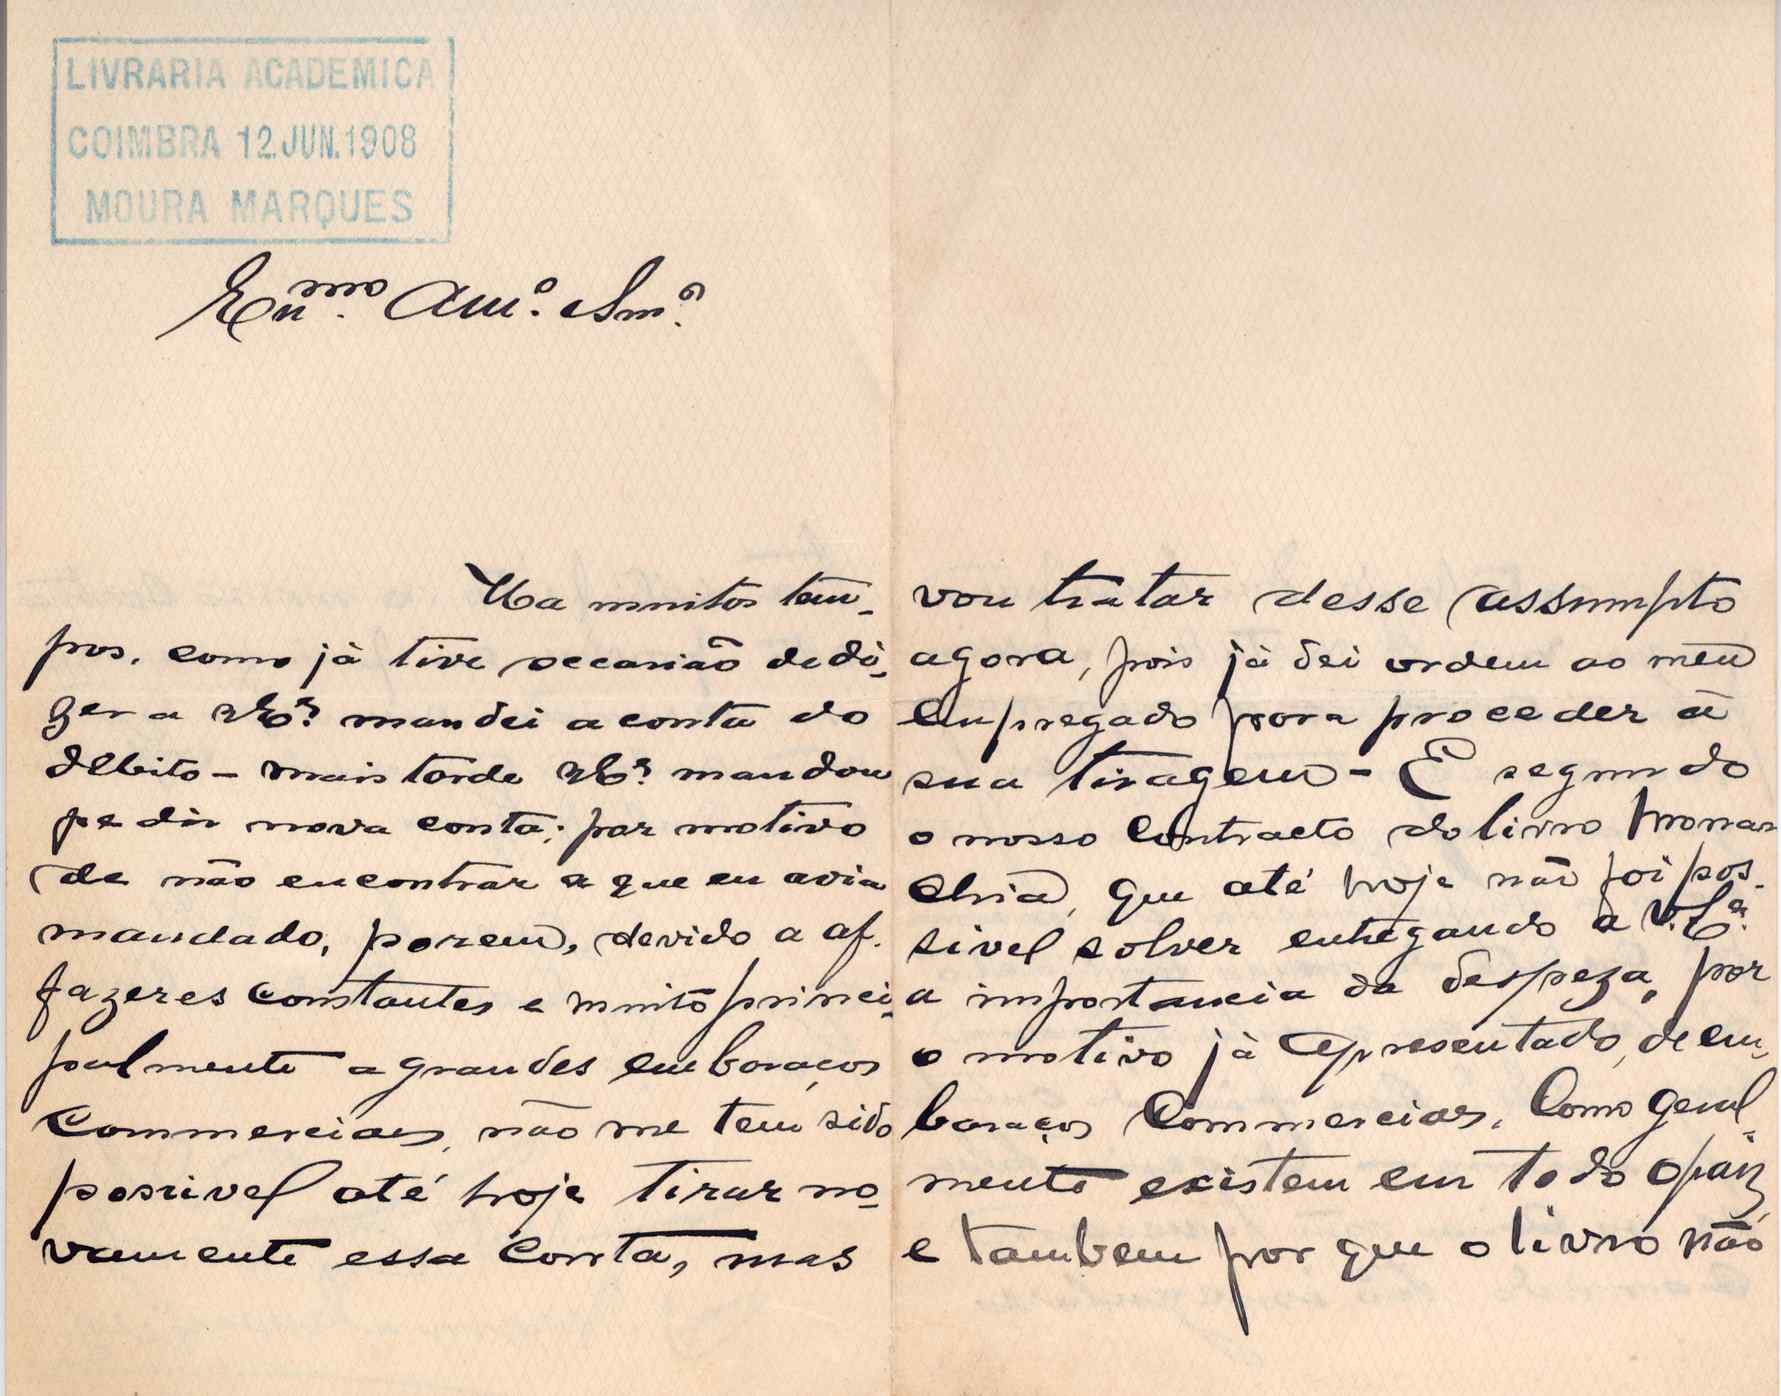 LIVRARIA ACADEMICA
COIMBRA 12.JUN.1908
MOURA MARQUES
Exmo. Amo. Snr.
Ha muitos tem-
pos, como já tive occasião de di-
zer a V. Ex.ª mandei a conta do
debito - mais tarde V. Ex.ª mandou
pedir nova conta; por motivo
de não encontrar a que eu avia
mandado, porem, devido a af-
fazeres constantes e muito princi-
palmente a grandes embaraços
commerciaes, não me tem sido
possivel até hoje tirar no-
vamente essa conta, mas
vou tratar desse assumpto
agora, pois já dei ordem ao meu
empregado para proceder á
sua tiragem - E segundo
o nosso contracto do livro Monar
chia, que até hoje não foi pos-
sivel solver entregando a V. Ex.ª
a importancia da despeza, por
o motivo já apresentado, de em-
baraços commerciaes. Como geral-
mente existem em todo o paiz
e tambem por que o livro não